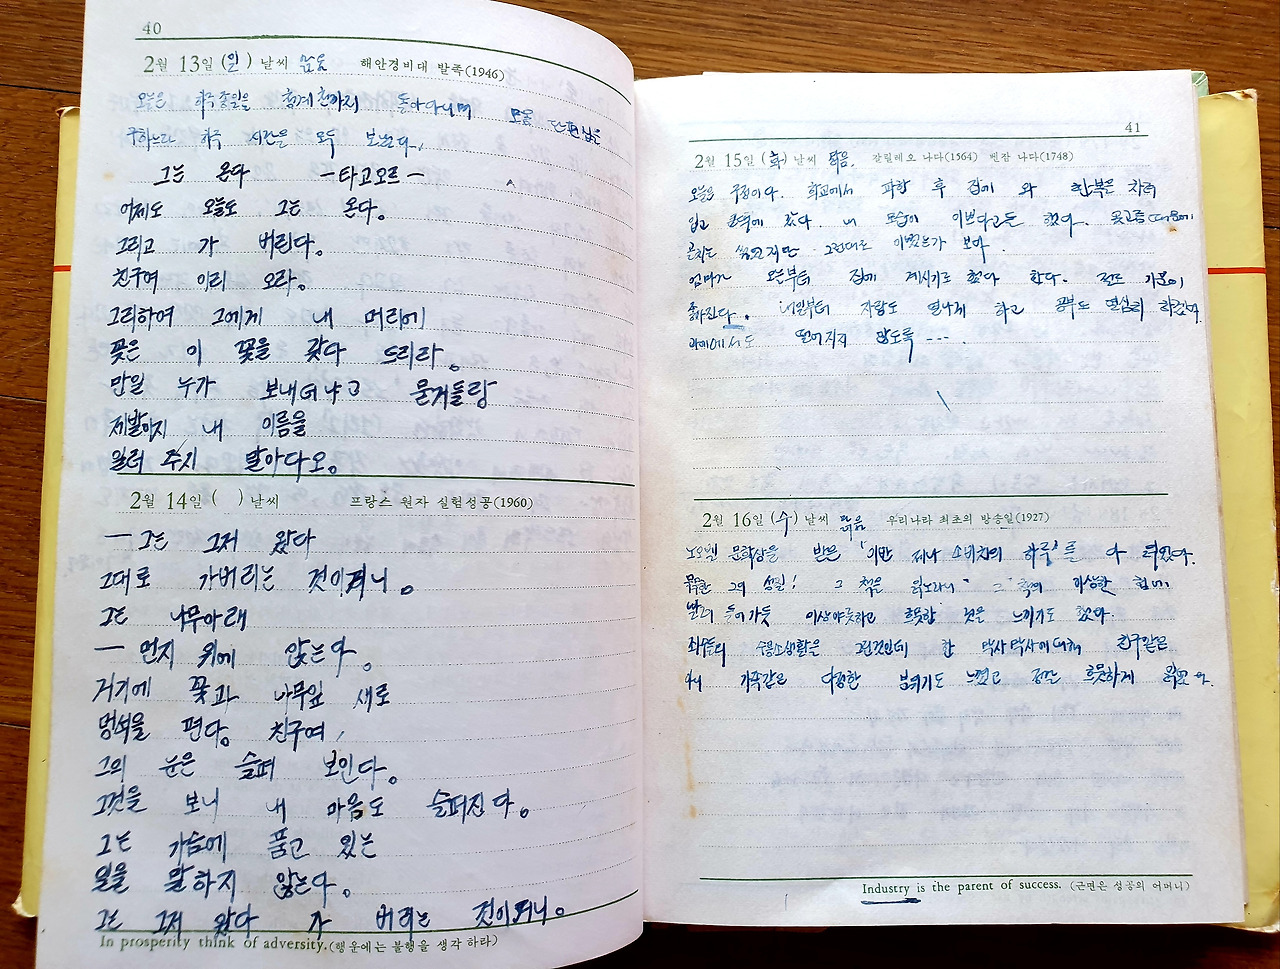 40
2월 13일 (일) 날씨 맑음 해안경비대 발족(1946)
오늘은 하루종일을 청계천까지 돌아다니며 모음 단편남은
구하느라 하루 시간을 모두 보냈다.
그는 온다 －타고오르－
어제도 오늘도 그는 온다.
그리고 가 버린다.
친구여 이리 오라.
그리하여 그에게 내 머리에
꽂은 이 꽃을 갖다 드리라.
만일 누가 보내더냐고 묻거들랑
제발이지 내 이름을
일러 주지 말아다오.
2월 14일 ( ) 날씨 프랑스 원자 실험성공(1960)
— 그는 그저 왔다
그대로 가버리는 것이려니.
그는 나무아래
— 먼지 위에 앉는다.
거기에 꽃과 나무잎 새로
멍석을 편다. 친구여,
그의 눈은 슬퍼 보인다.
그것을 보니 내 마음도 슬퍼진다.
그는 가슴에 품고 있는
일을 말하지 않는다.
그는 그저 왔다 가 버리는 것이려니.
In prosperity think of adversity.(행운에는 불행을 생각 하라)
41
2월 15일 (화) 날씨 맑음. 갈릴레오 나다(1564) 벤잠 나다(1748)
오늘은 구정이다. 학교에서 파한 후 집에 와 한복을 차려
입고 갔다. 내 모습이 이쁘다고들 했다. 때문에
그런대로 이뻤는가 보다.
엄마가 오늘부터 집에 계시기로 했다 한다. 기분이
좋아진다. 내일부터 자랑도 하고 공부도 열심히 하겠다.
떨어지지 않도록 ---.
2월 16일 (수) 날씨 맑음 우리나라 최초의 방송일(1927)
노오벨 문학상을 받은 「이반 데니소비치의 하루」를 다 읽었다.
그의 성실! 그 책은 읽노라니 그 책의 이상한 힘에
빨려 들어가듯 이상야릇하고 흐뭇한 것을 느끼기도 했다.
죄수들의 수용소생활은 그런것인데 한
가족같은 다정한 분위기도 느꼈고 흐뭇하게 읽었다.
Industry is the parent of success. (근면은 성공의 어머니)